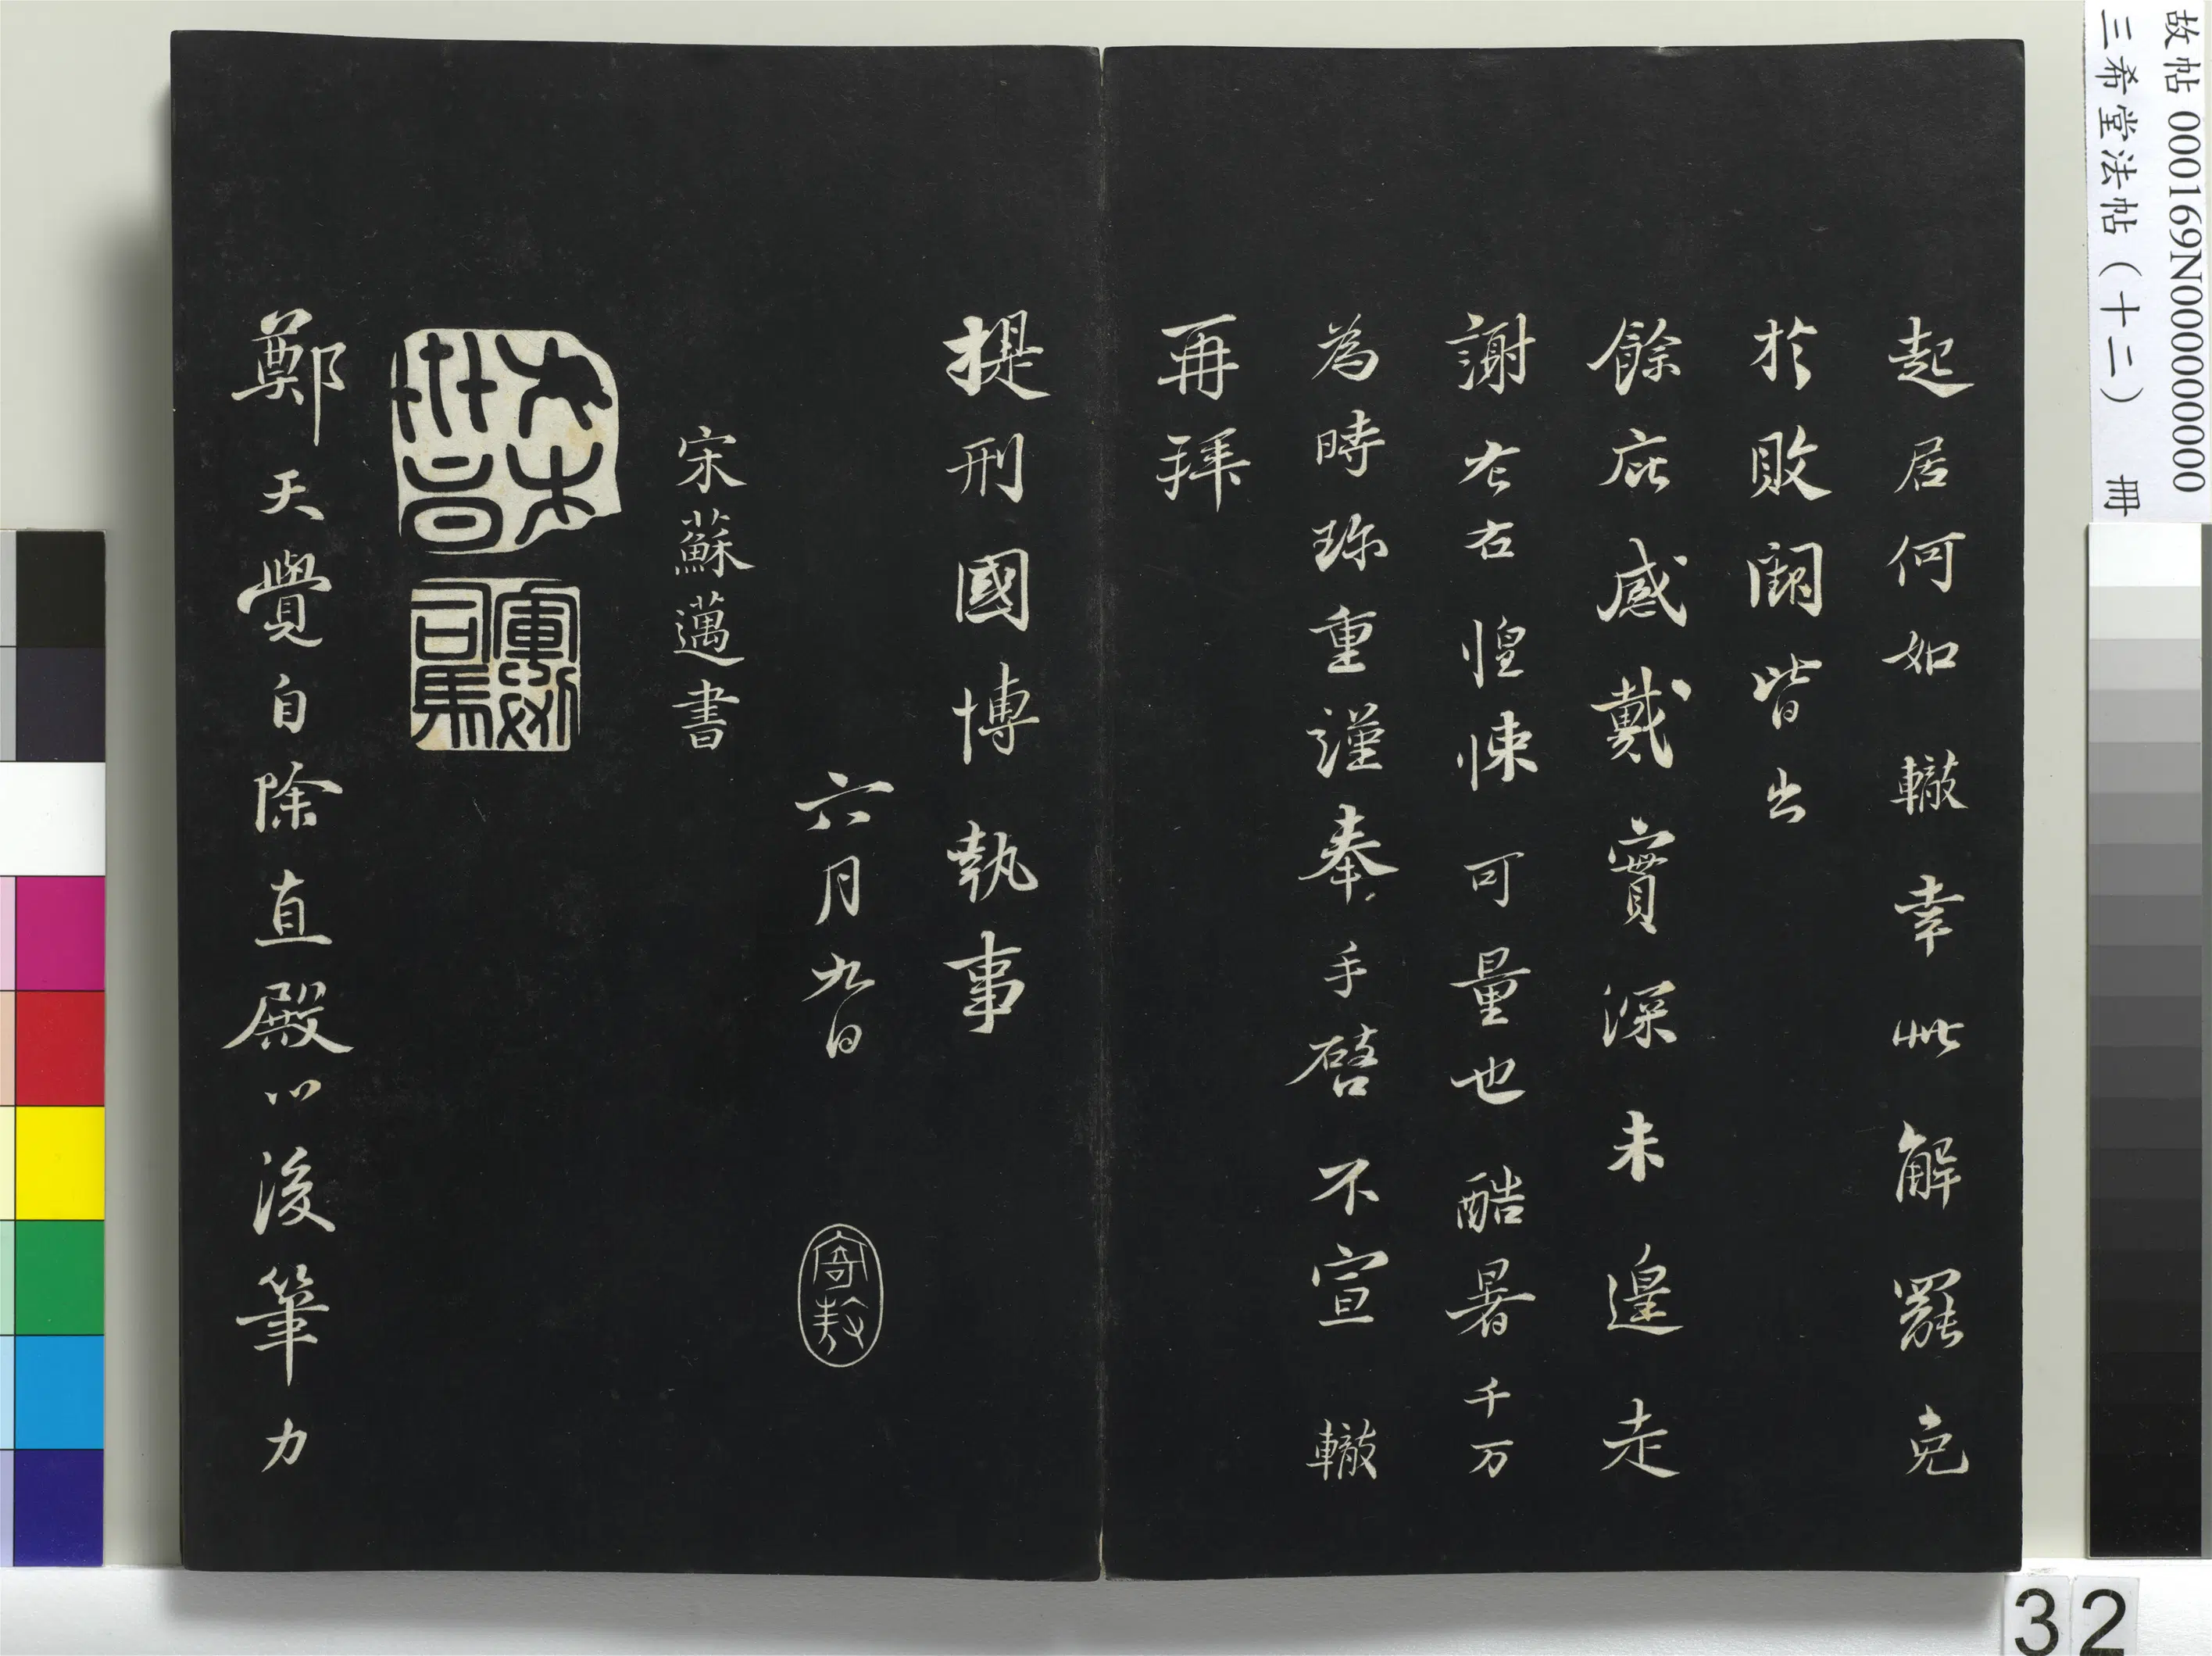 起居何如轍幸此解罷免
於敗闕皆出
餘庇感戴實深未遑走
謝左右惶悚可量也酷暑千万
為時珎重謹奉手啓不宣轍
再拜
提刑國博執事
六月九日
宋蘇邁書
鄭天覺自除直殿以後筆力
故帖 000169N000000000
三希堂法帖（十二） 冊
32